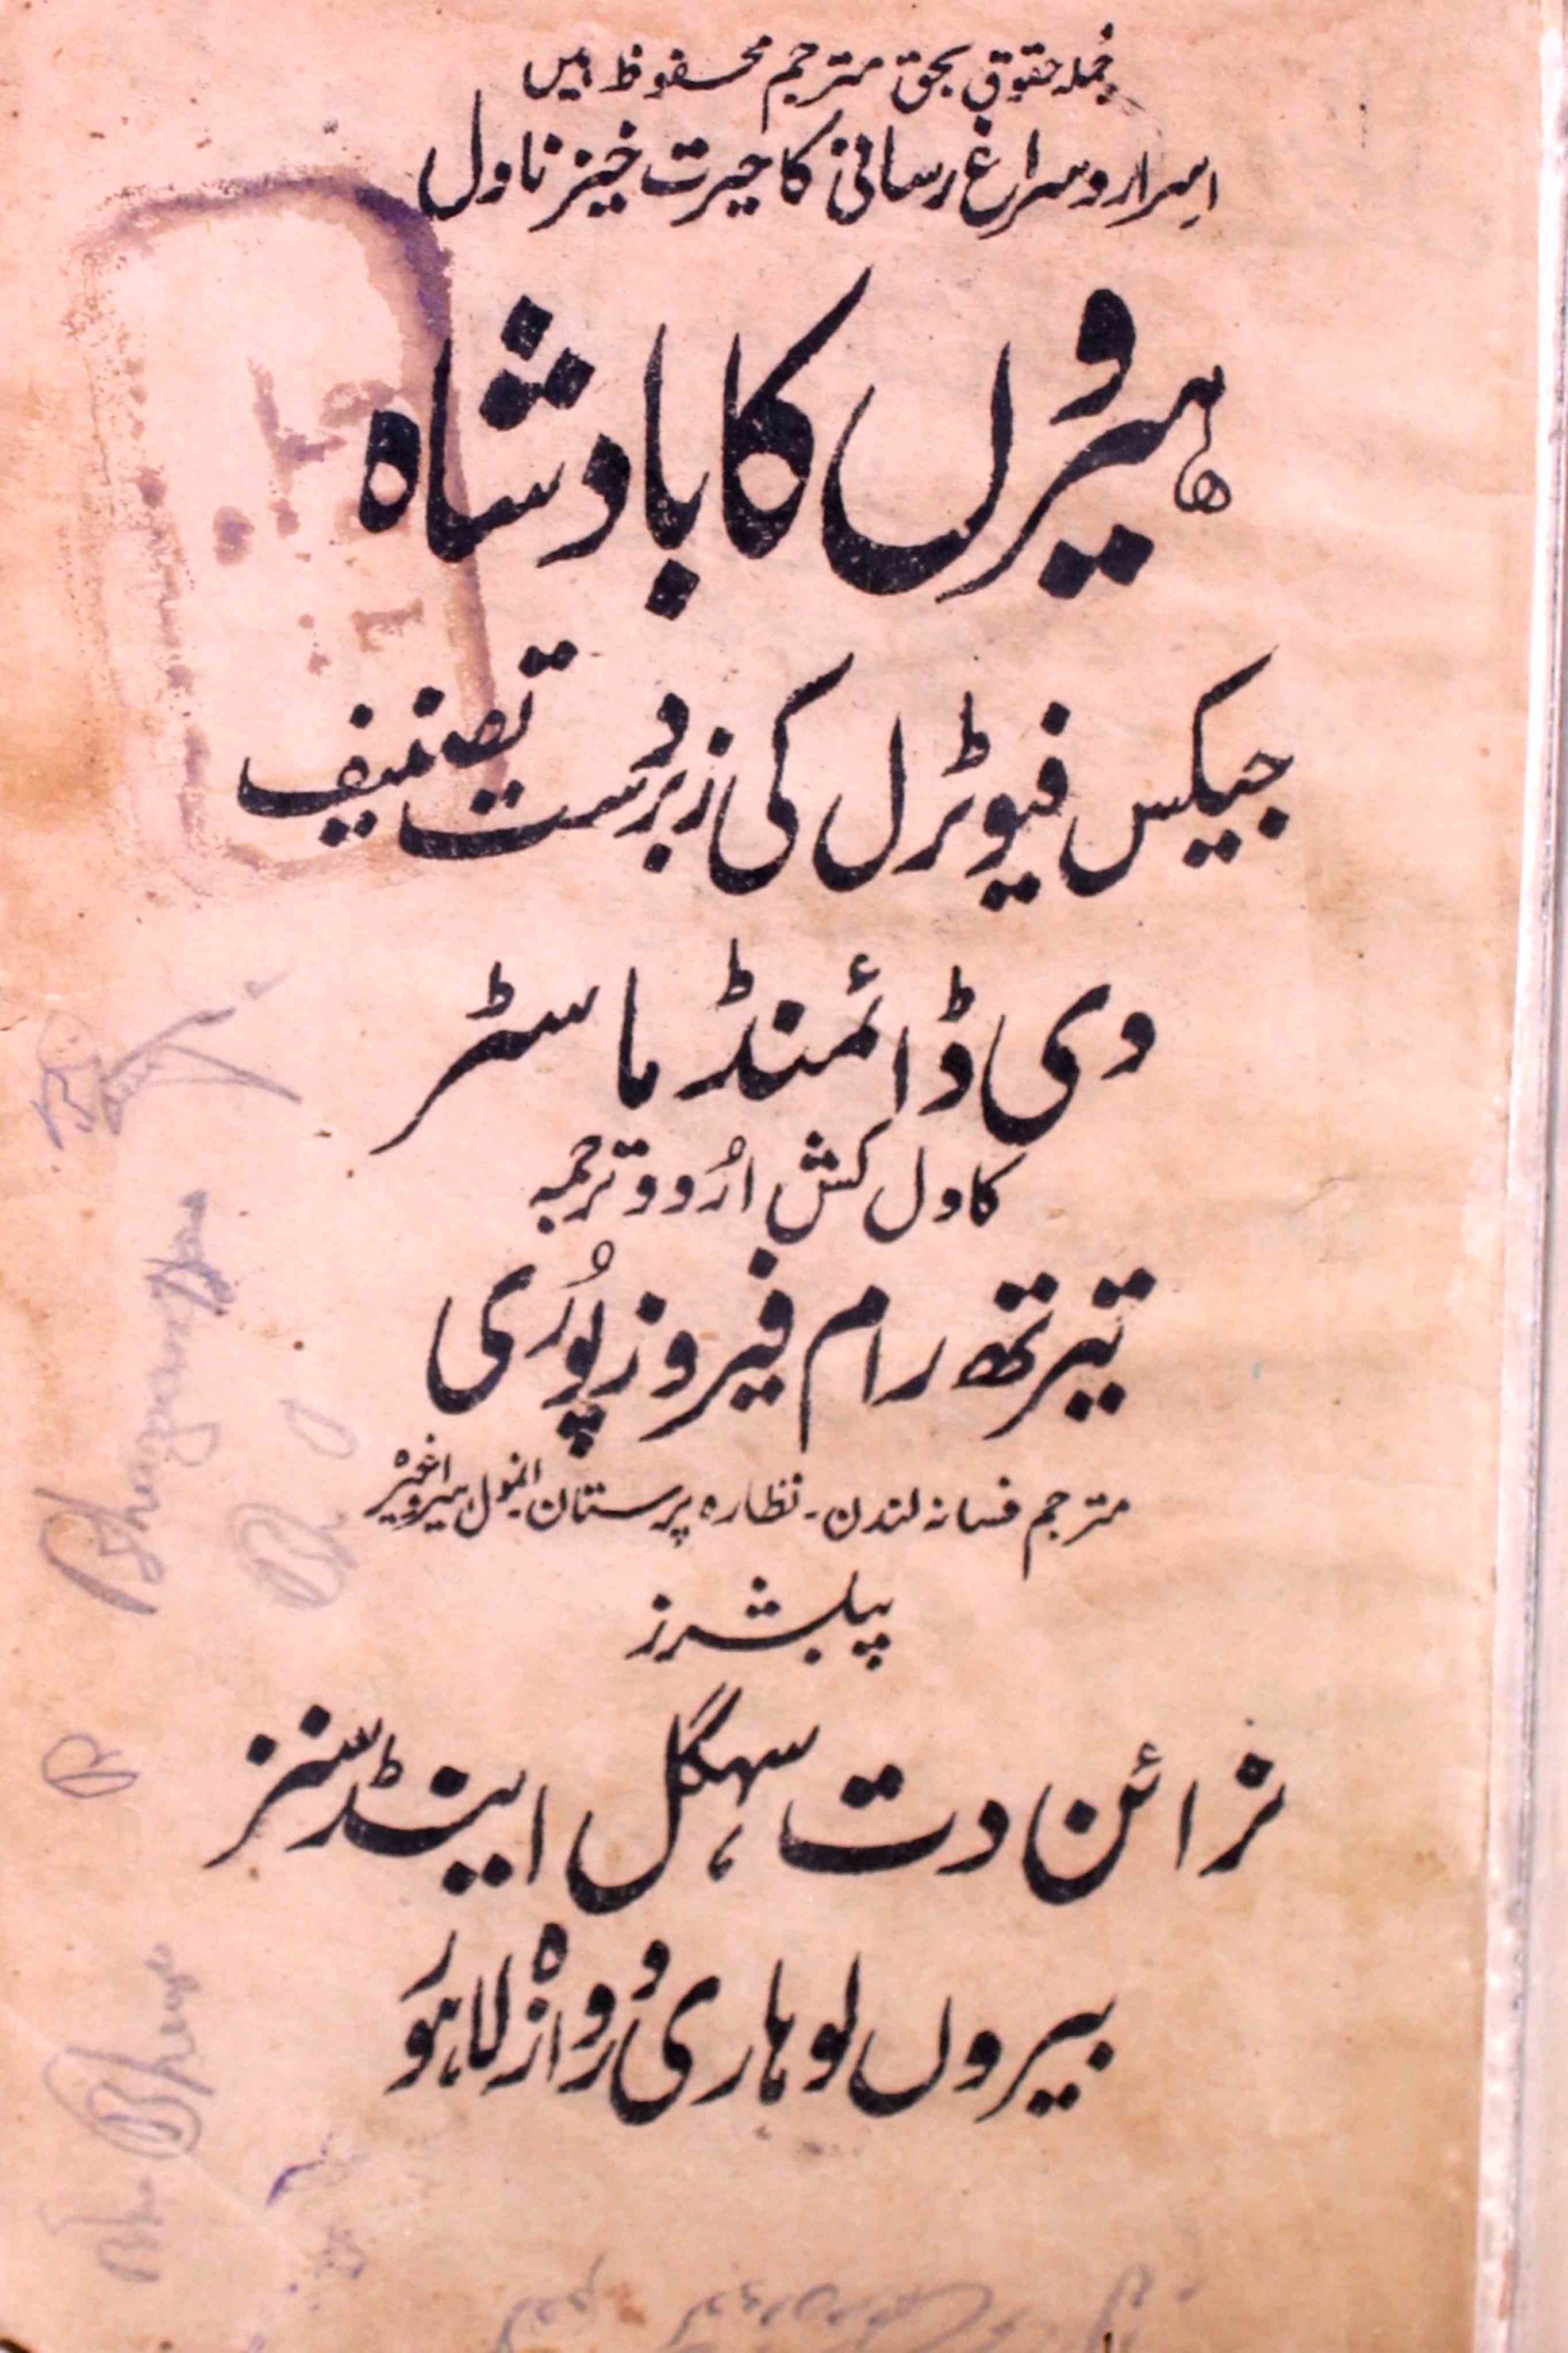 جُملہ حقوق بحق مترجم محفوظ ہیں
اسرار و سراغ رسانی کا حیرت خیز ناول
ہیروں کا بادشاہ
جیکس فیوٹرل کی زبردست تصنیف
دی ڈائمنڈ ماسٹر
کا دل کش اُردو ترجمہ
تیرتھ رام فیروز پُوری
مترجم فسانہ لندن - نظارہ پرستان انمول ہیرا وغیرہ
پبلشرز
نرائن دت سہگل اینڈ سنز
بیروں لوہاری دروازہ لاہور